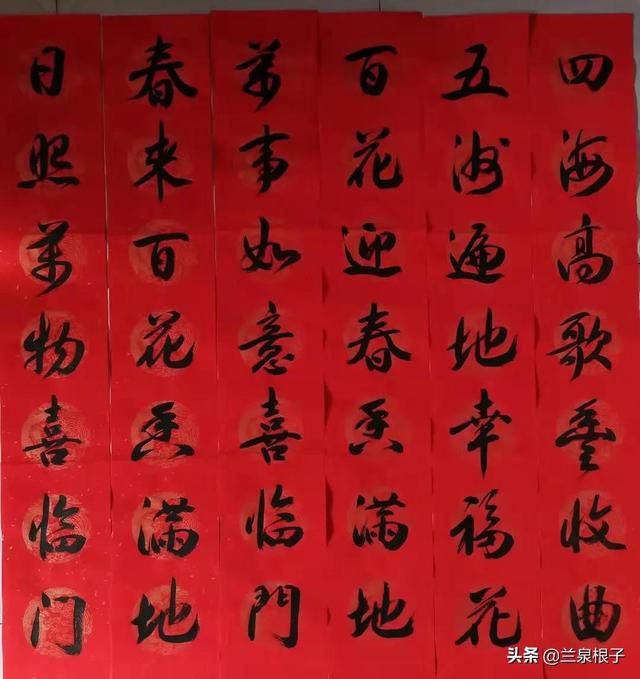 四海高歌豐收曲
五洲遍地幸福花
百花迎春香满地
萬事如意喜临門
春来百花香满地
日照萬物喜临门
头条 @兰泉根子